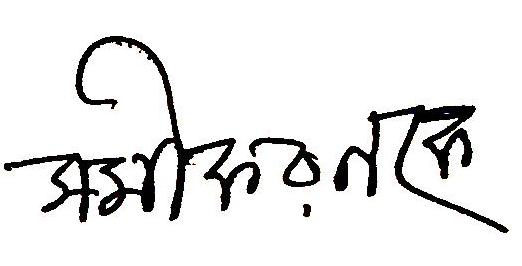 সমীকরণকে